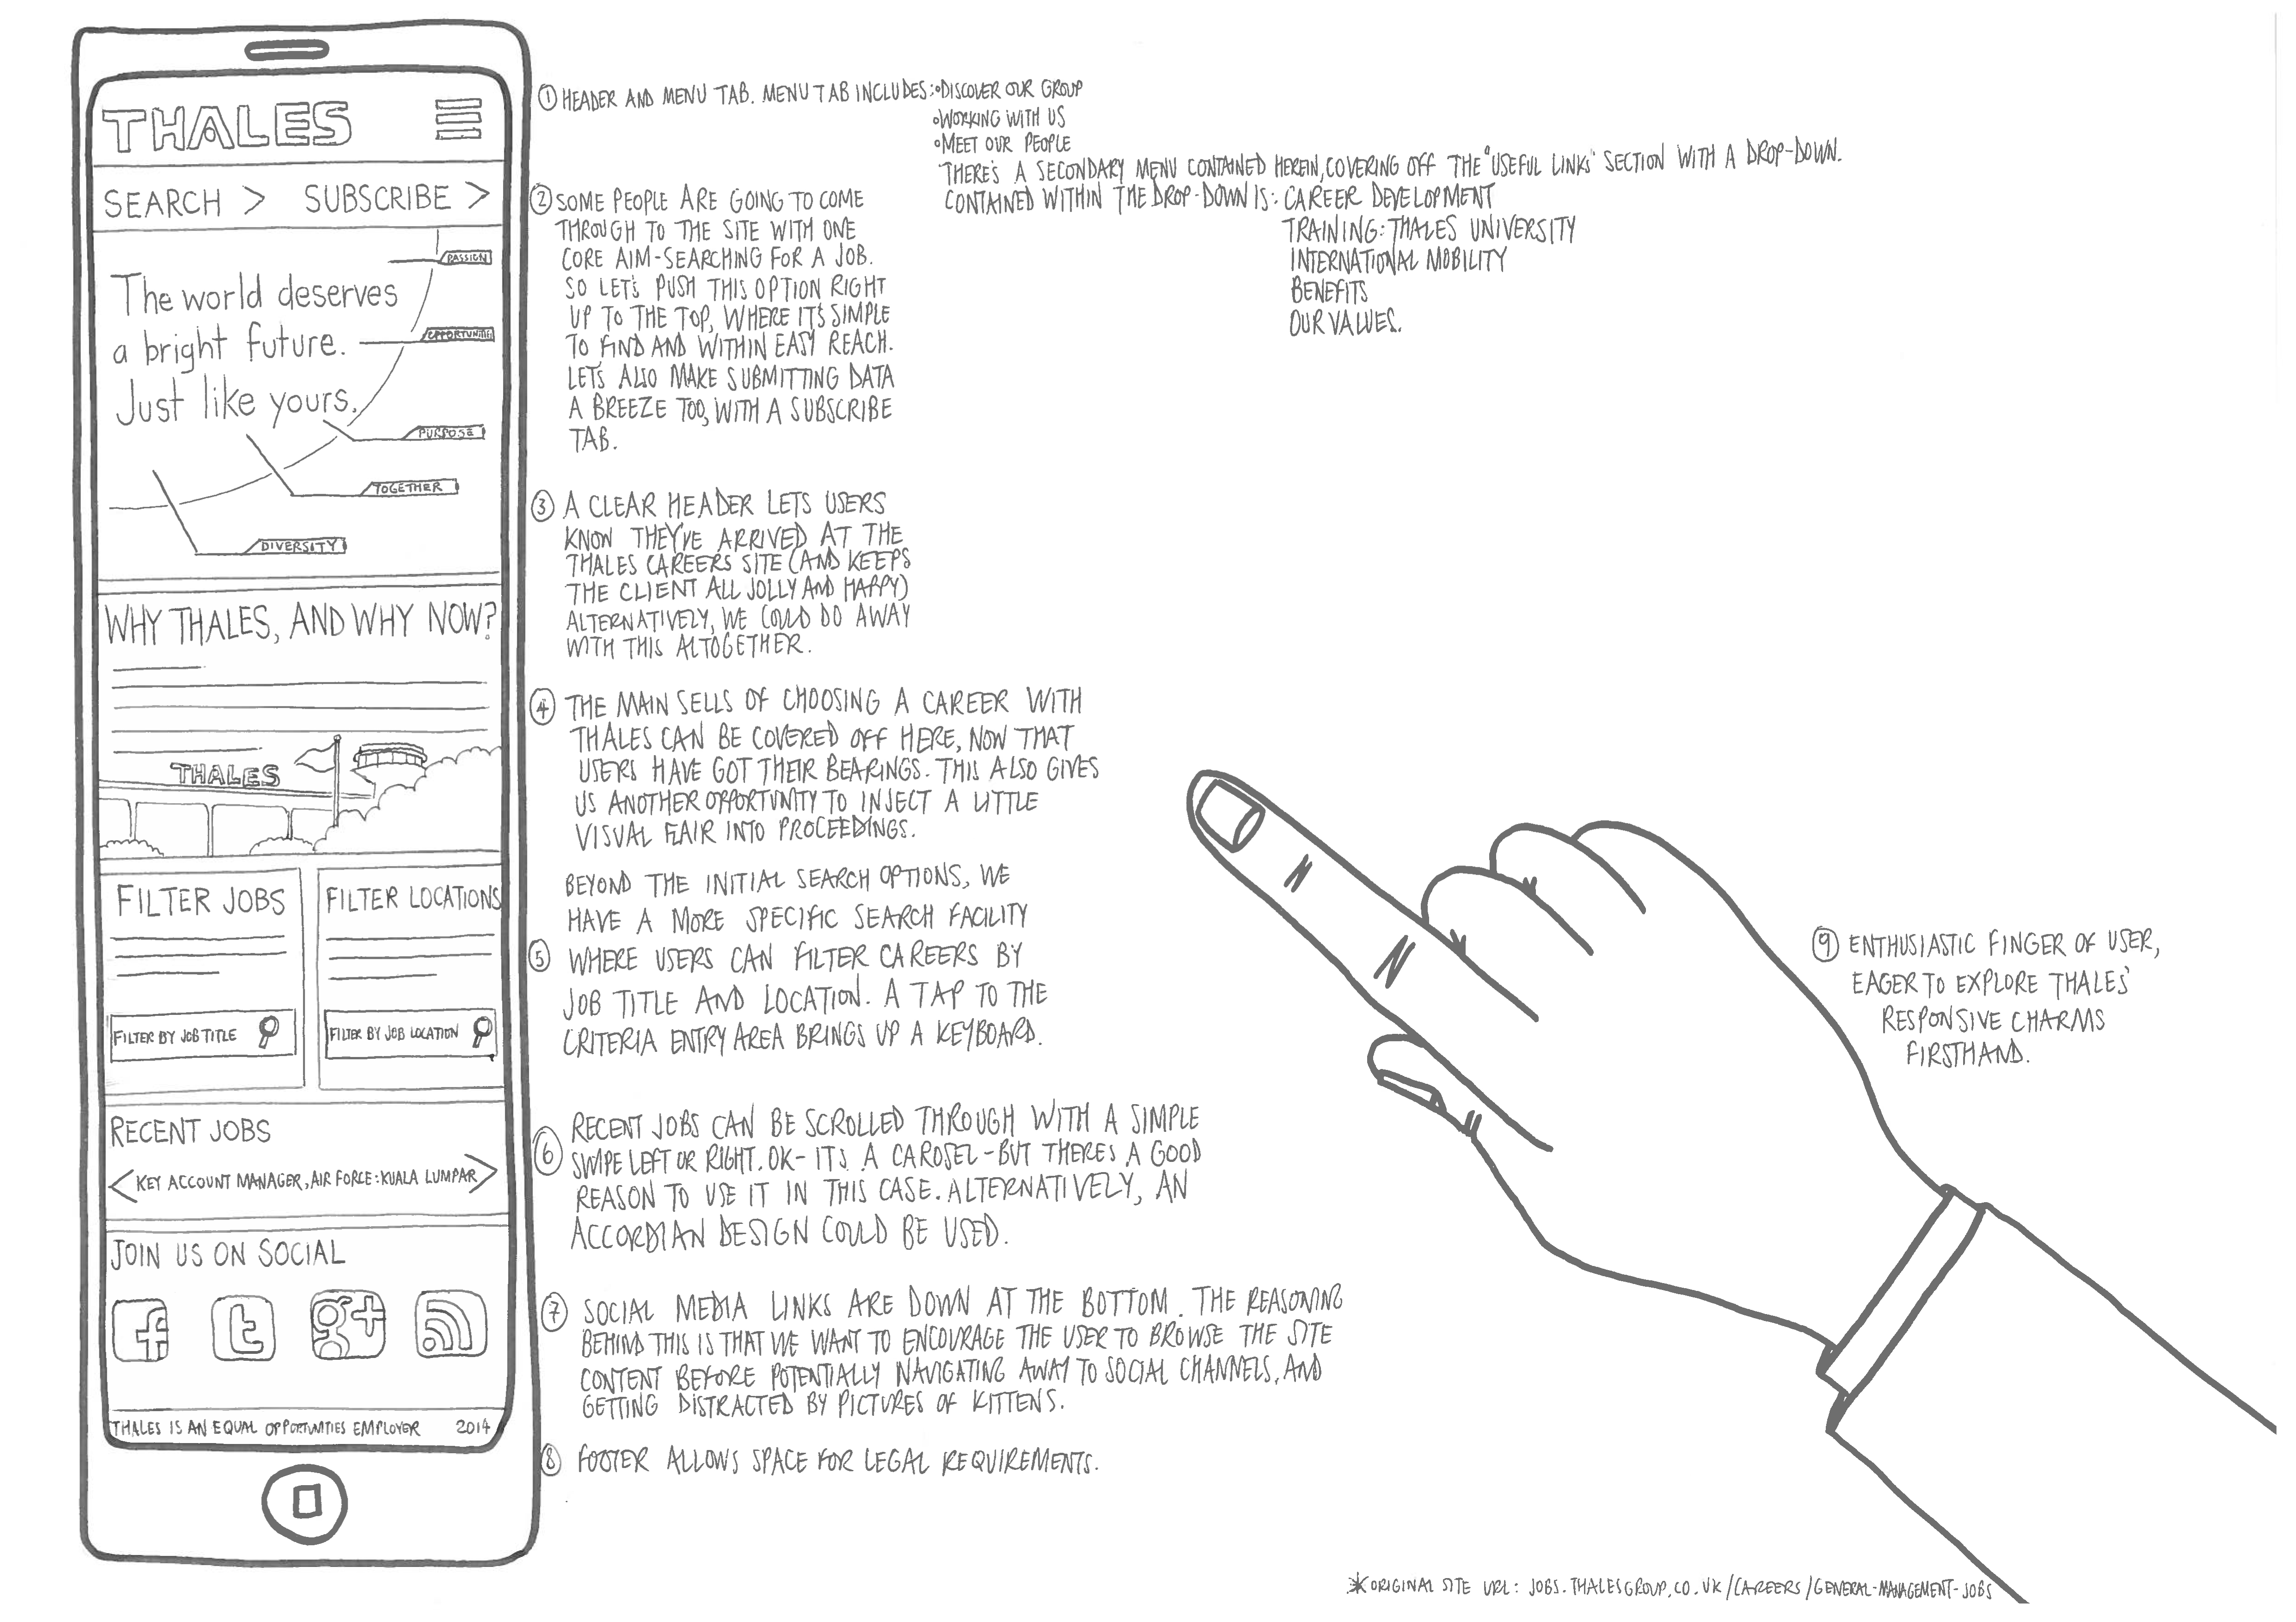 THALES
SEARCH > SUBSCRIBE >
PASSION
The world deserves
a bright future.
Just like yours.
OPPORTUNITIES
PURPOSE
TOGETHER
DIVERSITY
WHY THALES, AND WHY NOW?
THALES
FILTER JOBS
FILTER BY JOB TITLE
FILTER LOCATIONS
FILTER BY JOB LOCATION
RECENT JOBS
< KEY ACCOUNT MANAGER, AIR FORCE: KUALA LUMPAR >
JOIN US ON SOCIAL
f t g+
THALES IS AN EQUAL OPPORTUNITIES EMPLOYER 2014
① HEADER AND MENU TAB. MENU TAB INCLUDES: •DISCOVER OUR GROUP
•WORKING WITH US
•MEET OUR PEOPLE
THERE'S A SECONDARY MENU CONTAINED HEREIN, COVERING OFF THE "USEFUL LINKS" SECTION WITH A DROP-DOWN.
CONTAINED WITHIN THE DROP-DOWN IS: CAREER DEVELOPMENT
TRAINING: THALES UNIVERSITY
INTERNATIONAL MOBILITY
BENEFITS
OUR VALUES.
② SOME PEOPLE ARE GOING TO COME
THROUGH TO THE SITE WITH ONE
CORE AIM-SEARCHING FOR A JOB.
SO LET'S PUSH THIS OPTION RIGHT
UP TO THE TOP, WHERE IT'S SIMPLE
TO FIND AND WITHIN EASY REACH.
LET'S ALSO MAKE SUBMITTING DATA
A BREEZE TOO, WITH A SUBSCRIBE
TAB.
③ A CLEAR HEADER LETS USERS
KNOW THEY'VE ARRIVED AT THE
THALES CAREERS SITE (AND KEEPS
THE CLIENT ALL JOLLY AND HAPPY)
ALTERNATIVELY, WE COULD DO AWAY
WITH THIS ALTOGETHER.
④ THE MAIN SELLS OF CHOOSING A CAREER WITH
THALES CAN BE COVERED OFF HERE, NOW THAT
USERS HAVE GOT THEIR BEARINGS. THIS ALSO GIVES
US ANOTHER OPPORTUNITY TO INJECT A LITTLE
VISUAL FLAIR INTO PROCEEDINGS.
BEYOND THE INITIAL SEARCH OPTIONS, WE
HAVE A MORE SPECIFIC SEARCH FACILITY
⑤ WHERE USERS CAN FILTER CAREERS BY
JOB TITLE AND LOCATION. A TAP TO THE
CRITERIA ENTRY AREA BRINGS UP A KEYBOARD.
⑥ RECENT JOBS CAN BE SCROLLED THROUGH WITH A SIMPLE
SWIPE LEFT OR RIGHT. OK- IT'S A CAROSEL-BUT THERE'S A GOOD
REASON TO USE IT IN THIS CASE. ALTERNATIVELY, AN
ACCORDIAN DESIGN COULD BE USED.
⑦ SOCIAL MEDIA LINKS ARE DOWN AT THE BOTTOM. THE REASONING
BEHIND THIS IS THAT WE WANT TO ENCOURAGE THE USER TO BROWSE THE SITE
CONTENT BEFORE POTENTIALLY NAVIGATING AWAY TO SOCIAL CHANNELS, AND
GETTING DISTRACTED BY PICTURES OF KITTENS.
⑧ FOOTER ALLOWS SPACE FOR LEGAL REQUIREMENTS.
⑨ ENTHUSIASTIC FINGER OF USER,
EAGER TO EXPLORE THALES'
RESPONSIVE CHARMS
FIRSTHAND.
*ORIGINAL SITE URL: JOBS.THALESGROUP.CO.UK/CAREERS/GENERAL-MANAGEMENT-JOBS